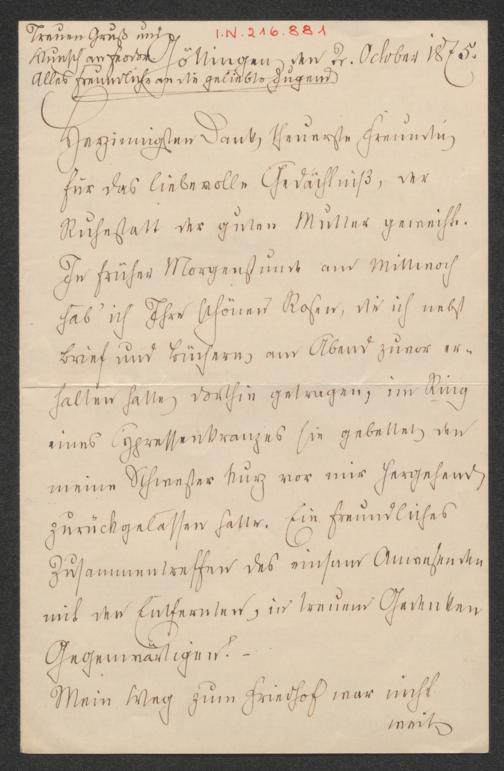 Treuen Gruß und
Wunsch an Feodor
Alles Freundliche an die geliebte Jugend
I.N. 216.881
Göttingen, den 2. October 1875.
Herzinnigsten Dank, theuerste Freundin,
für das liebevolle Gedächtniß, der
Ruhestatt der guten Mutter geweiht.
In früher Morgenstunde am Mittwoch
hab' ich Ihre schönen Rosen, die ich nebst
Brief und Büchern, am Abend zuvor er-
halten hatte, dorthin getragen, im Ring
eines Cypressenkranzes sie gebettet, den
meine Schwester kurz vor mir hergehend,
zurückgelassen hatte. Ein freundliches
Zusammentreffen des einsam Anwesenden
mit den Entfernten, in treuem Gedenken
Gegenwärtigen! –
Mein Weg zum Friedhof war nicht
weit,